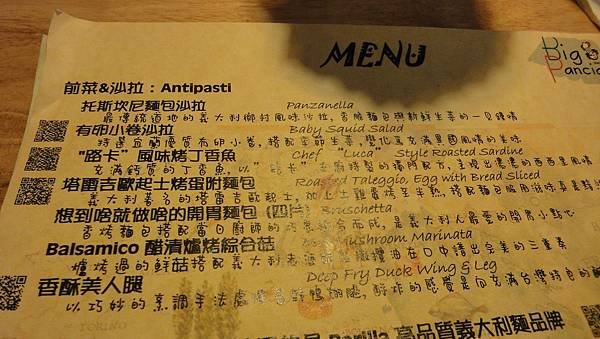 MENU
Big
Pancia
前菜&沙拉：Antipasti
托斯坎尼麵包沙拉 Panzanella
最傳統道地的義大利鄉村風味沙拉，香脆麵包與新鮮生菜的一見鍾情
有卵小卷沙拉 Baby Squid Salad
特選宜蘭優質有卵小卷，搭配蘿蔓生菜，變化出充滿異國風情的美味
"路卡"風味烤丁香魚 Chef "Luca" Style Roasted Sardine
充滿鈣質的丁香魚，以"路卡"主廚特製的獨門配方，呈現出濃濃的西西里風情
塔雷吉歐起士烤蛋附麵包 Roasted Taleggio, Egg with Bread Sliced
義大利著名的塔雷吉歐起士，加上土雞蛋烤至半熟，搭配麵包服用滋味真是
想到啥就做啥的開胃麵包 (四片) Bruschetta
香烤麵包搭配當日廚師的 而成，是義大利人最愛的開胃小點心
Balsamico 醋漬爐烤綜合菇 Mushroom Marinata
爐烤過的鮮菇搭配義大利老 橄欖油在口中譜出完美的三重奏
香酥美人腿 Deep Fry Duck Wing & Leg
以巧妙的烹調手法處 鴨翅腿，酥炸的感覺是向充滿台灣特色的
Barilla 高品質義大利麵品牌